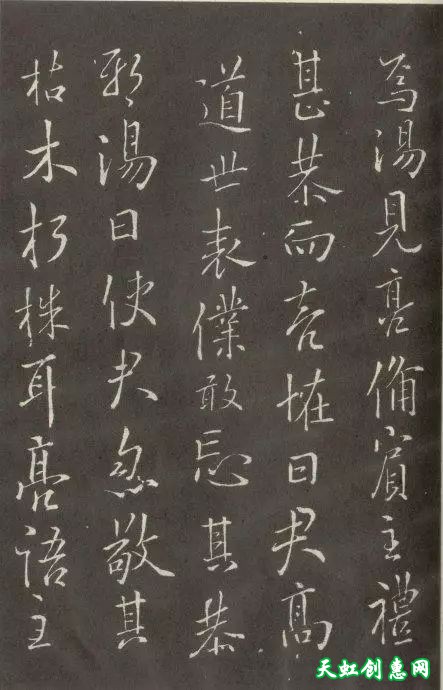 焉湯見亮備賓主禮
甚恭而曰君高
道世表僕敢忘其恭
耶湯曰使君忽敬其
枯木朽株耳亮語主
天虹创惠网